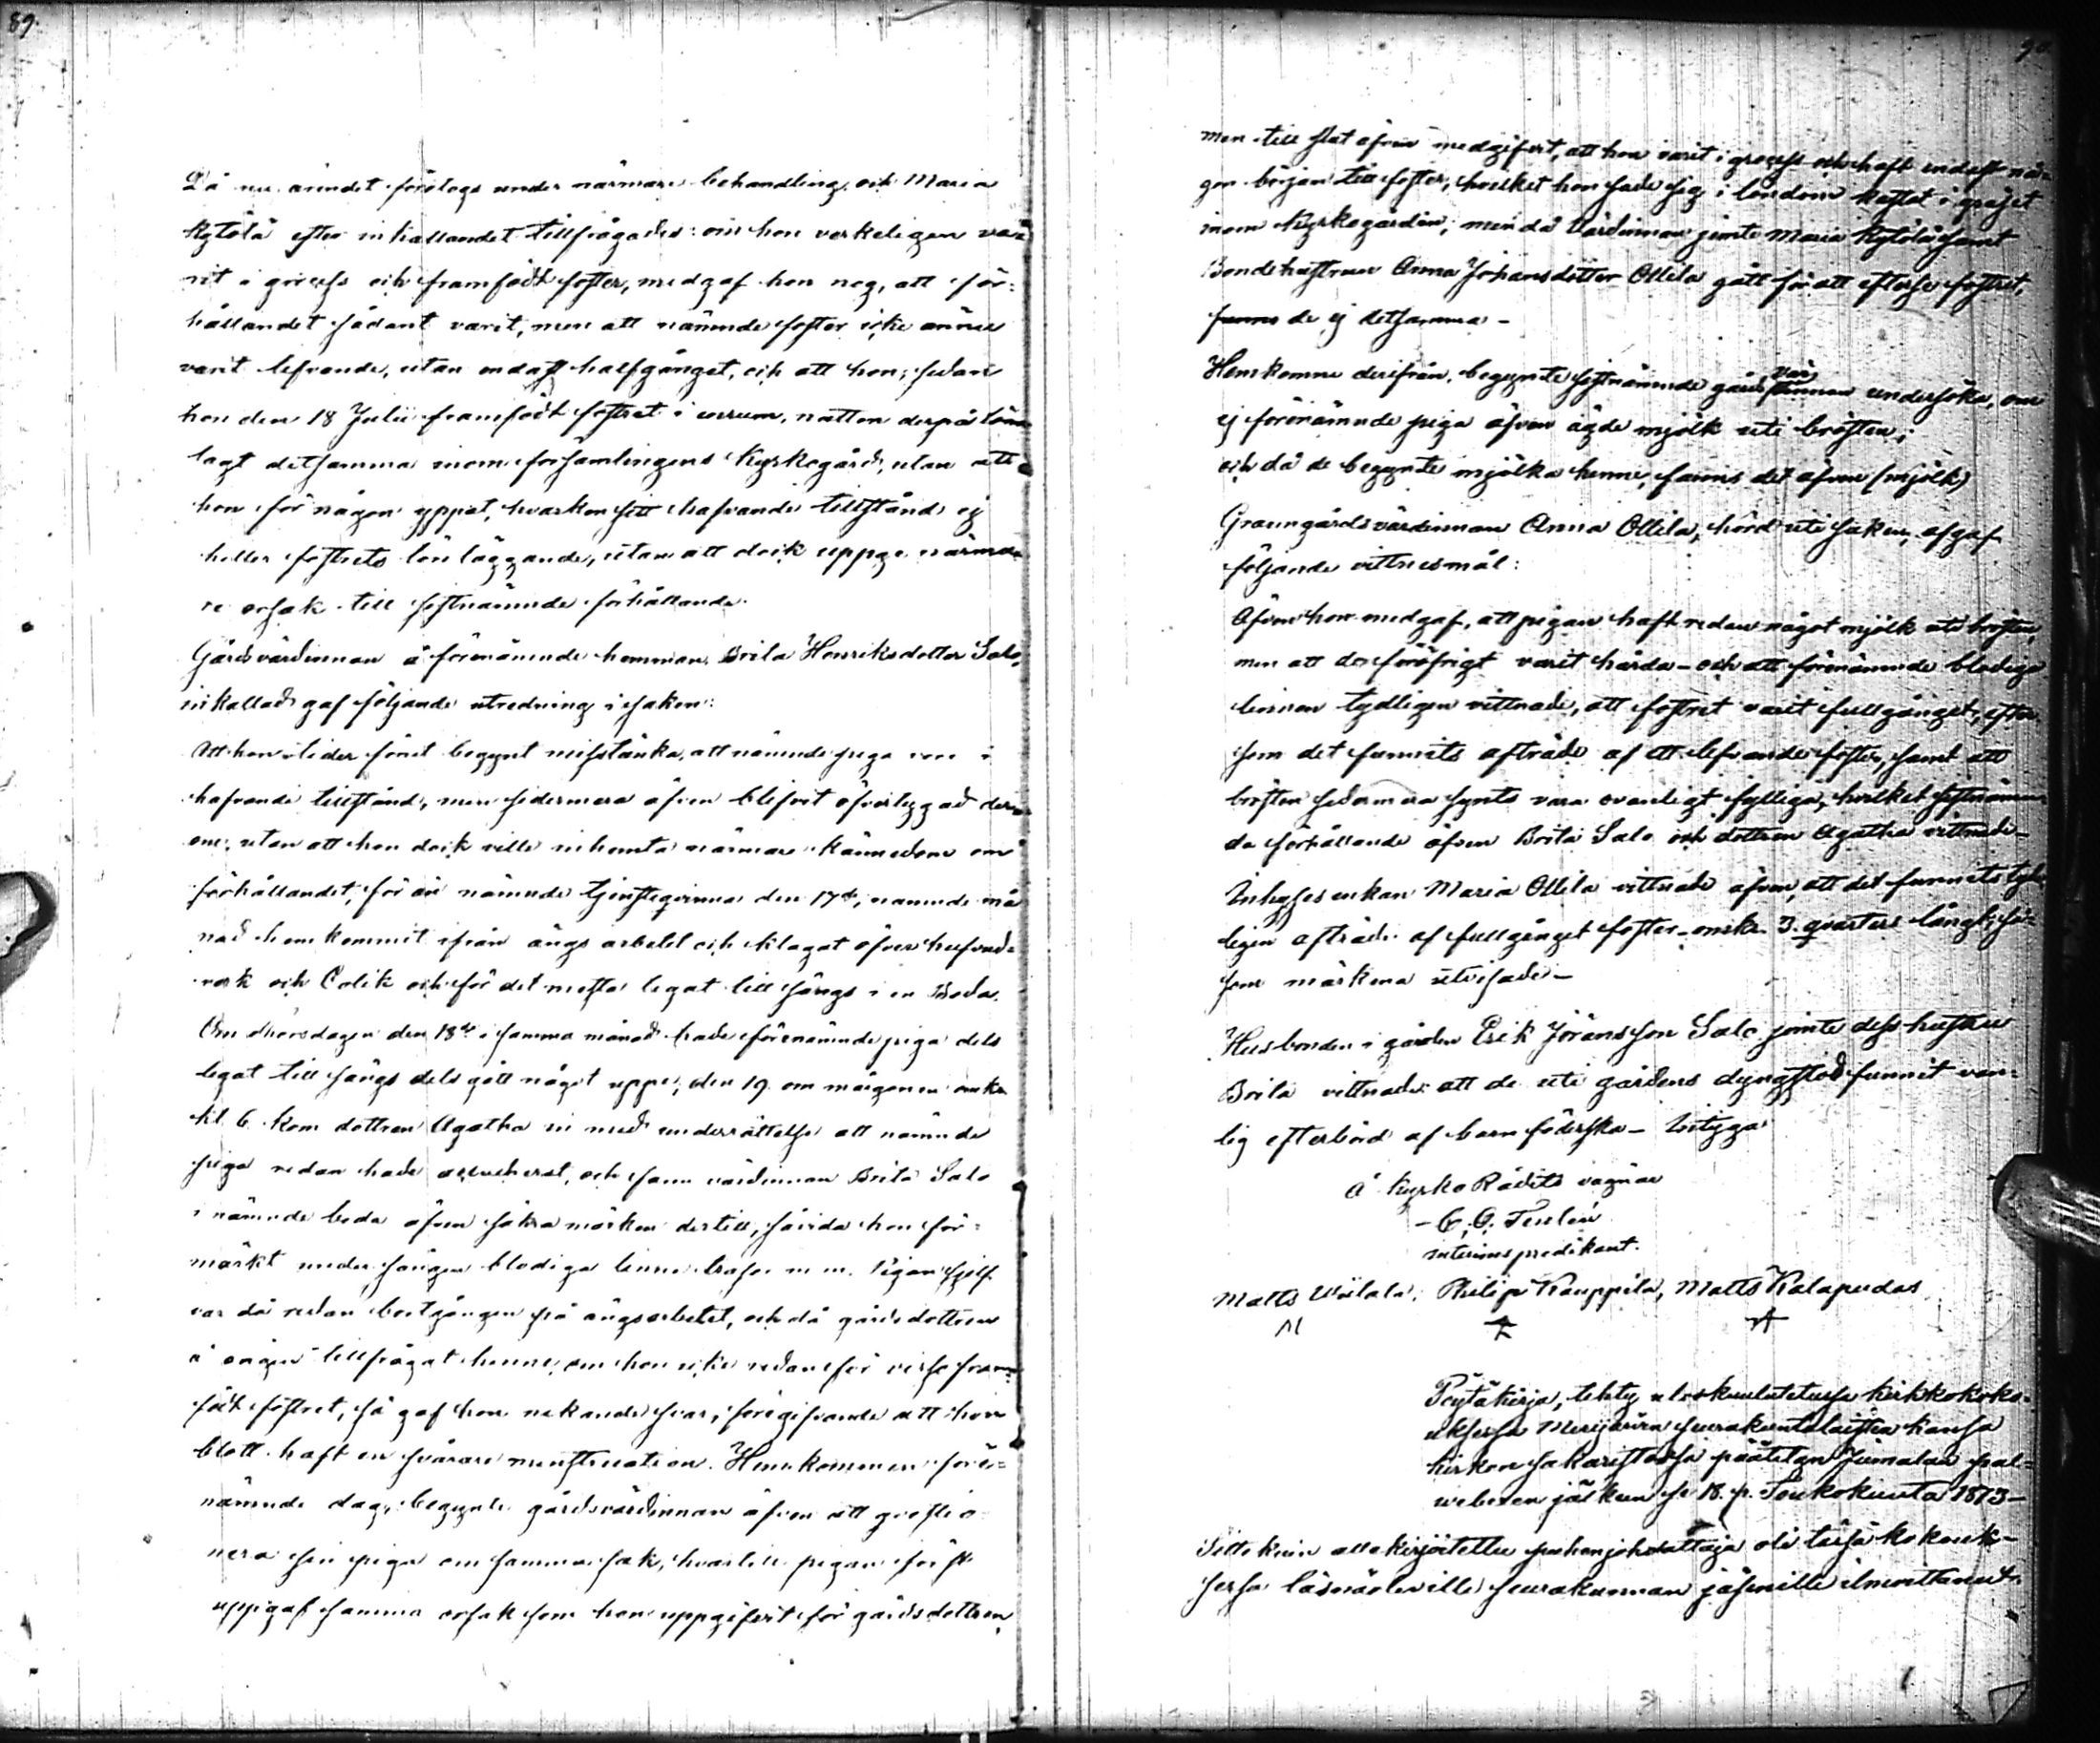 89.
Då nu ärendet företogs under närmare behandling och Maria
Kytölä efter inkallandet tillfrågades: om hon verkeligen va-
rit i grosess och framfödt foster, medgaf hon nog, att för-
hållandet sådant varit, men att nämnde foster icke ännu
varit lefvande, utan endast halfgånget, och att hon, sedan
hon den 18 Julii framfödt fostret i uthus, natten derpå lön-
lagt detsamma inom församlingens Kyrkogård, utan att
hon för någon yppat, hvarken sitt hafvande tillstånd ej
heller fostrets lönläggande, utan att dock uppge närma-
re orsak till sistnämnde förhållande.
Gårdsvärdinnan å förenämnde hemman, Brita Henriksdotter Salo,
inkallad gaf följande utredning i saken:
Att hon olider förut begynt misstänka, att nämnde piga vore i
hafvande tillstånd, men sedermera äfven blifvit öfvertyggad der-
om; utan att hon dock ville inhemta närmare kännedom om
förhållandet, förän nämnde tjenstegvinna den 17de, nämnde må
nad hemkommit ifrån ängs arbetet och klagat öfver hufvud-
verk och Colik och för det mesta legat till sängs i en Boda.
Om thorsdagen den 18de i samma månad hade förenämnde piga dels
legat till sängs dels gått något uppe; den 19 om morgonen omkr.
kl. 6 kom dottren Agatha in med underrättelse att nämnde
piga redan hade accucherat, och fann värdinnan Brita Salo
i nämnde boda äfven säkra märken dertill, såvida hon för-
märkt under sängen blodiga linne trasor m. m. Pigan sjelf
var då redan bortgången på ängsarbetet, och då gårdsdottren
å vägen tillfrågat henne, om hon icke redan för visso fram-
födt fostret, så gaf hon nekande svar, föregifvande att hon
blott haft en svårare menstruation. Hemkommen före-
nämnde dag, begynte gårdsvärdinnan äfven att questio-
nera sin piga om samma sak, hvartill pigan först
uppgaf samma orsak som hon uppgifvit för gårdsdottren,
90.
men till slut äfven medgifvit, att hon varit i grosess och haft endast nå-
gon början till foster, hvilket hon sade sig i löndom kastat i gräset
inom Kyrkogården; men då Värdinnan jemte Maria Kytölä samt
Bondehustrun Anna Johansdotter Ollila gått för att efterse fostret,
funno de ej detsamma –
Hemkomne derifrån, begynte sistnämnde gårds vär
dinnan undersöka, om
ej förenämnde piga äfven ägde mjölk uti brösten;
och då de begynte mjölka henne, fanns det äfven (mjölk)
Granngårdsvärdinnan Anna Ollila, hörd uti saken, afgaf
följande vittnesmål:
Äfven hon medgaf, att pigan haft redan något mjölk uti brösten,
men att de föröfrigt varit hårda – och att förenämnde blodiga
linnen tydligen vittnade, att fostret varit fullgånget, efter
som det funnits afträde af ett lefvande foster, samt att
brösten sedermera synts vara ovanligt fylliga, hvilket sistnämn
da förhållande äfven Brita Salo och dottren Agatha vittnade –
Inhyses enkan Maria Ollila vittnade äfven, att det funnits tyd-
ligen afträde af fullgånget foster – omkr. 3. qvarters långt, så-
som märkena utvisade –
Husbonden i gården Erik Jöransson Salo jemte dess hustru
Brita vittnade: att de uti gårdens dyngstod funnit van-
lig efterbörd af barnföderska – Intygga
å Kyrko Rådets vägnar
– C. G. Terlén
interims predikant.
Matts Wiilala, Philip Kauppila, Matts Kalapudas
Pöytäkirja, tehty uloskuulutetussa kirkkokoko-
uksessa Merijärven seurakuntalaisten kanssa
kirkon sakaristossa päätetyn Jumalan pal-
weluxen jälkeen se 18. p. Toukokuuta 1873 –
Sitte kuin allekirjoitettu puheenjohdattaja oli tässä kokouk-
sessa läsnäoleville seurakunnan jäsenille ilmoittanut,